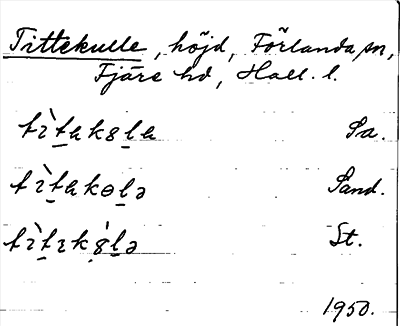 Tittekulle, höjd, Förlanda sn,
Fjäre hd, Hall. l.
tìt̲ak8l̲a Sa.
tìt̲akɵl̲ə Sand.
tìt̲ɪk8̀l̲ə St.
1950.